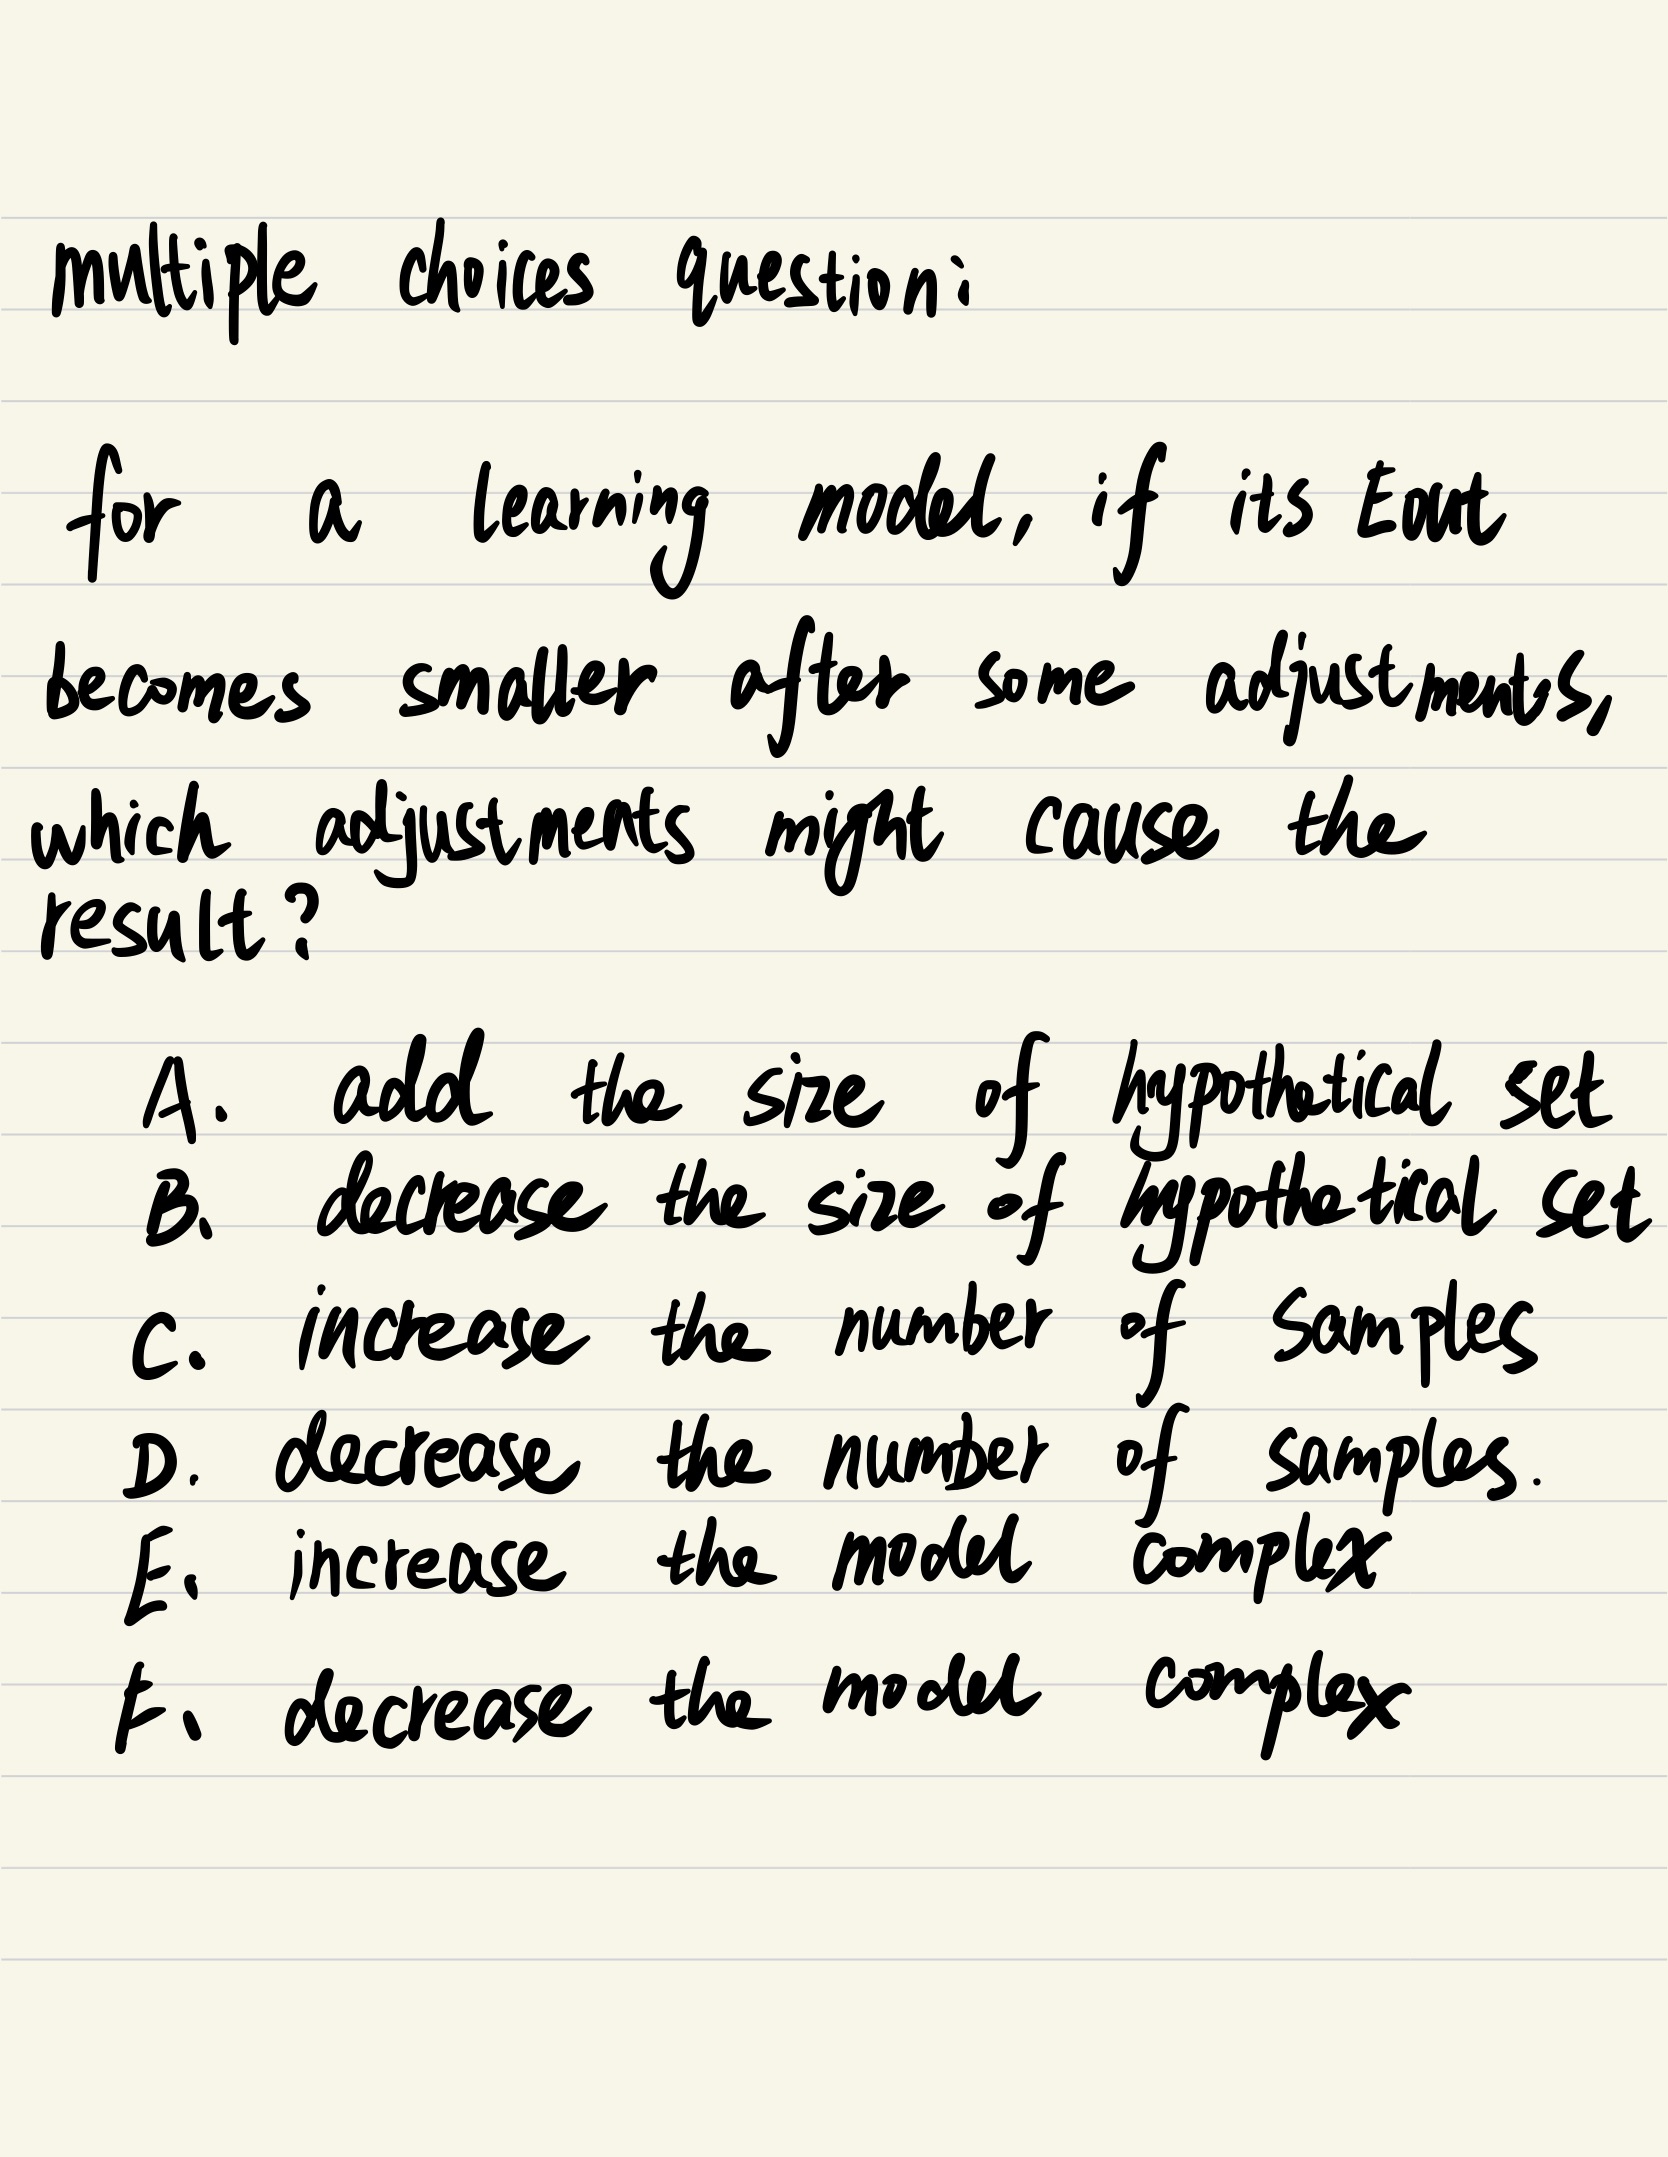 multiple choices question:
for a learning model, if its Eout
becomes smaller after some adjustments,
which adjustments might cause the
result?
A. add the size of hypothetical set
B. decrease the size of hypothetical set
C. increase the number of samples
D. decrease the number of samples.
E. increase the model complex
F. decrease the model complex